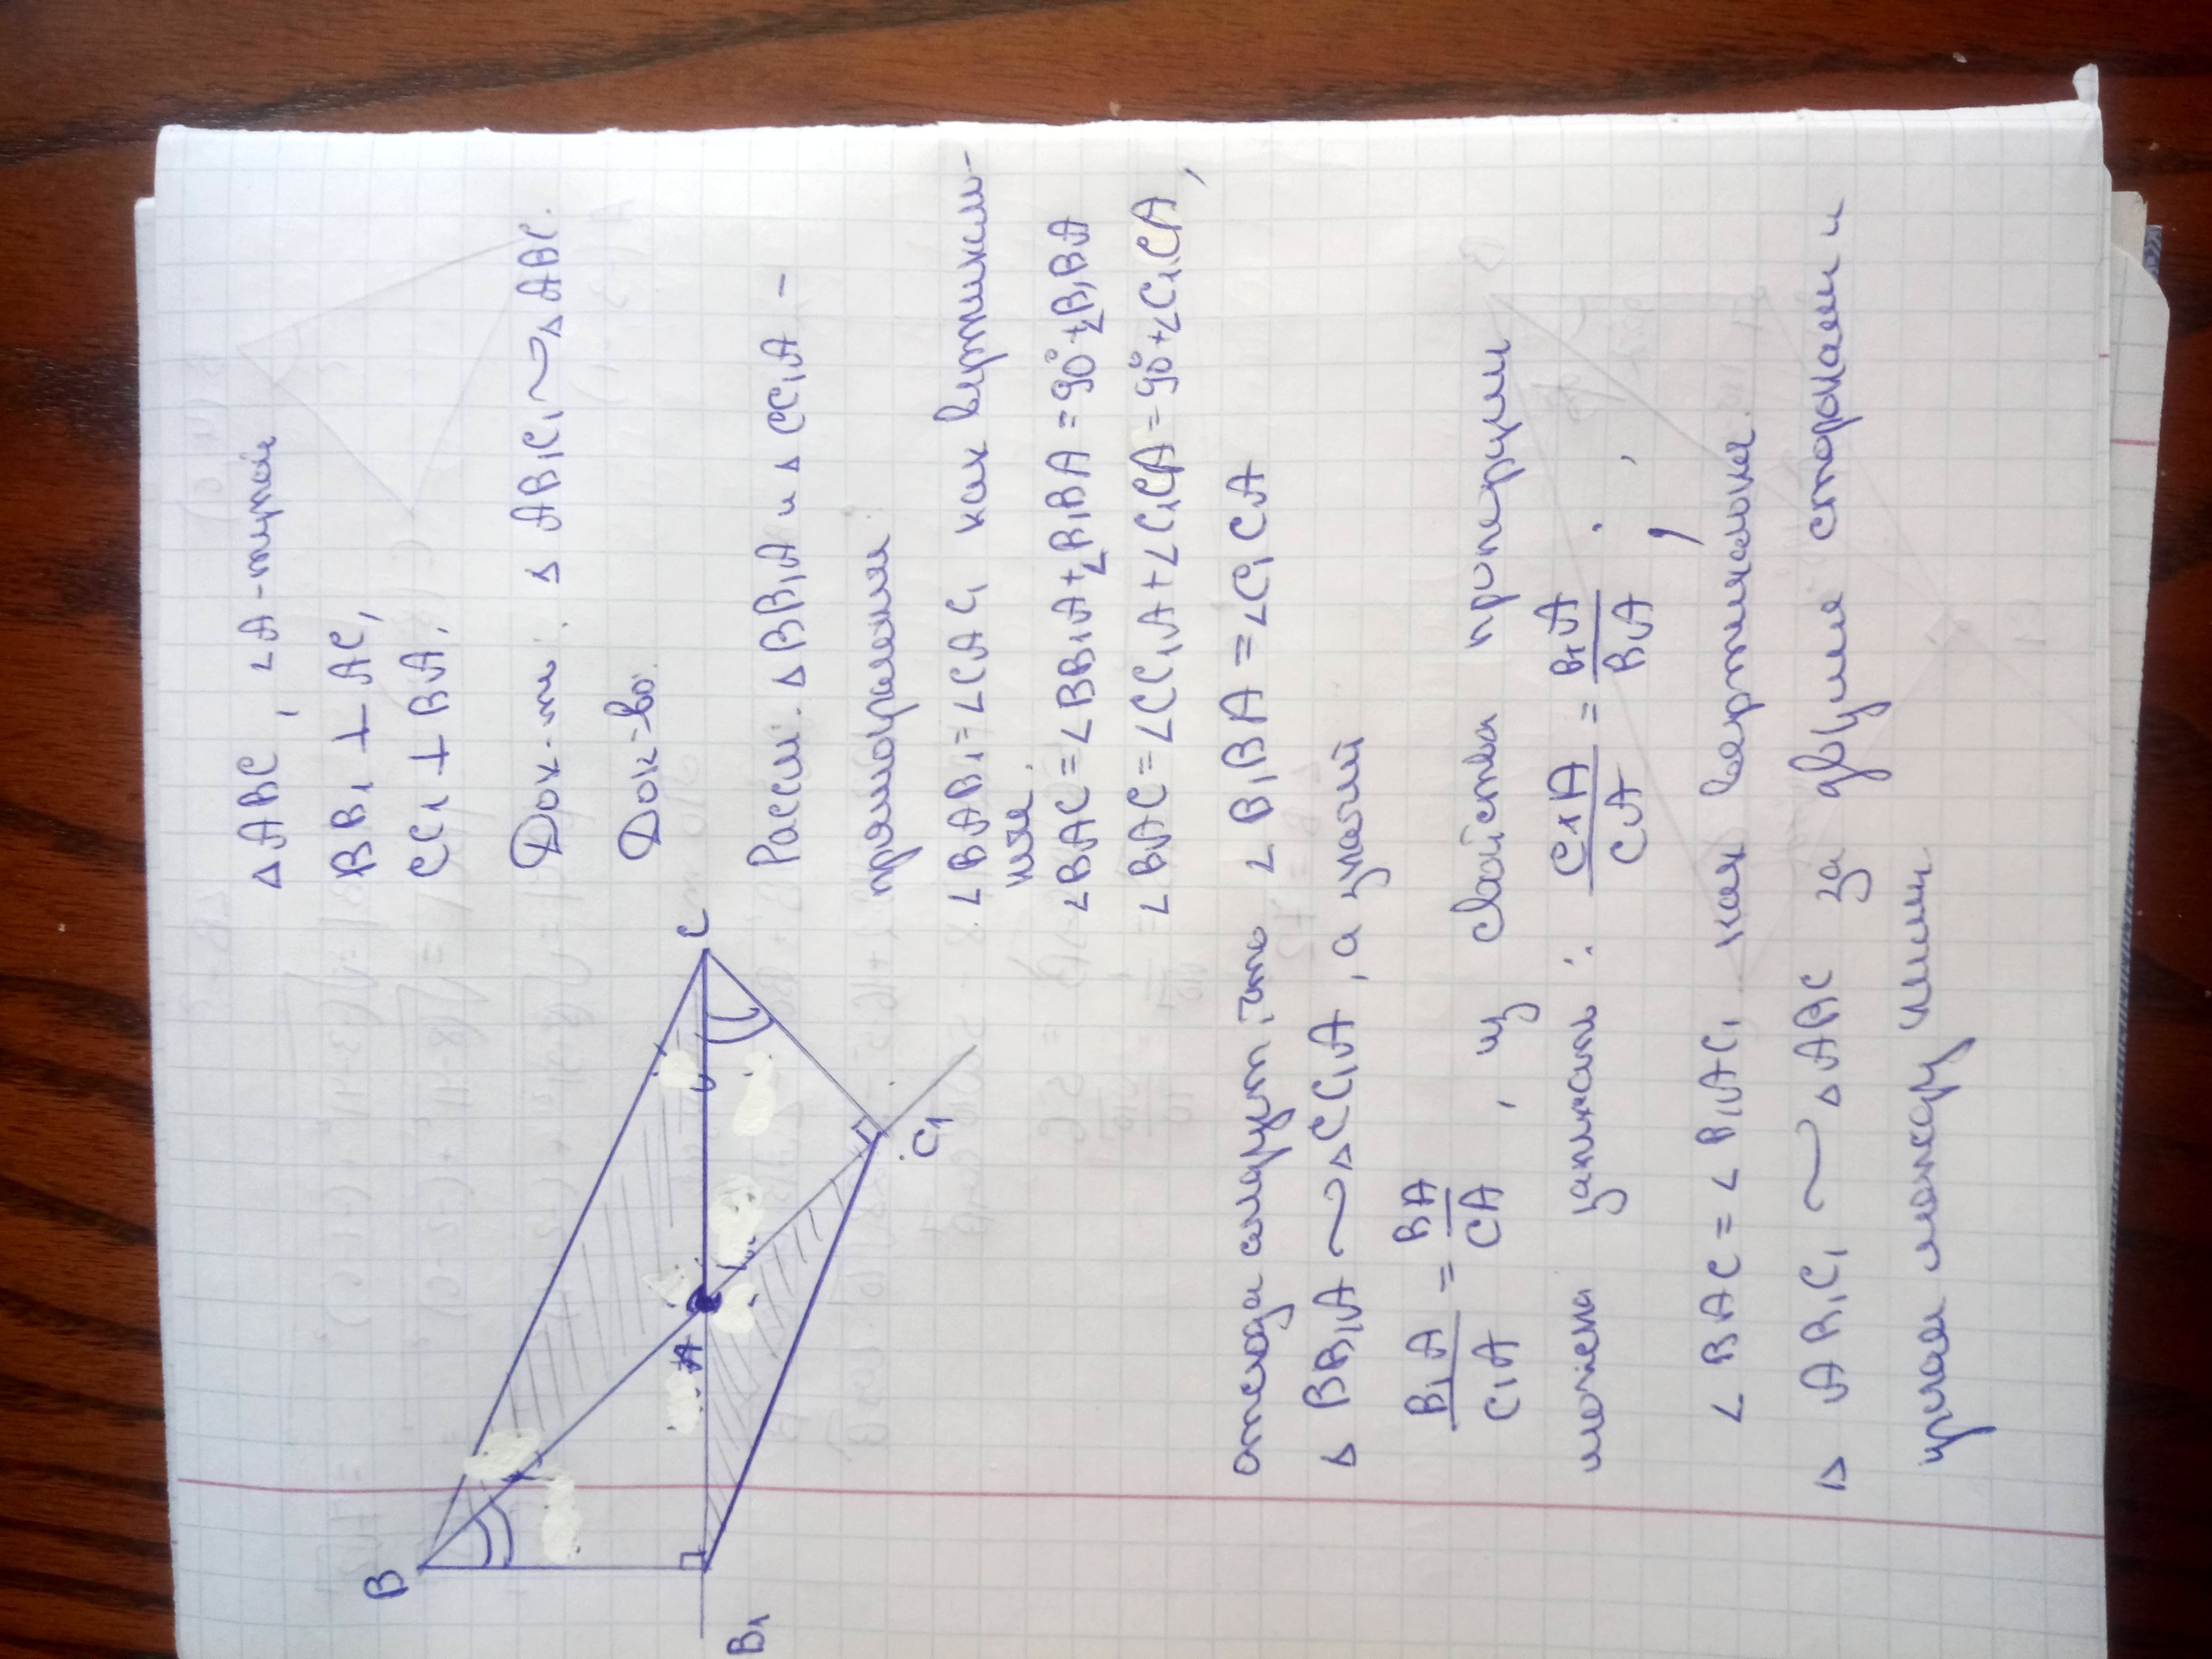 Δ ABC, ∠A - тупой
BB₁ ⊥ AC,
CC₁ ⊥ BA.
Док-ть: Δ AB₁C₁ ~ Δ ABC.
Док-во:
Рассм. Δ BB₁A и Δ CC₁A -
прямоугольные
∠BAB₁ = ∠CAC₁ как вертикаль-
ные.
∠BAC = ∠BB₁A + ∠B₁BA = 90° + ∠B₁BA
∠BAC = ∠CC₁A + ∠C₁CA = 90° + ∠C₁CA,
B
C
A
B₁
C₁
отсюда следует, что ∠B₁BA = ∠C₁CA
Δ BB₁A ~ Δ CC₁A, а значит
B₁A/C₁A = BA/CA, из свойства пропорции
можем записать: C₁A/CA = B₁A/BA,
∠BAC = ∠B₁AC₁ как вертикальные.
Δ AB₁C₁ ~ Δ ABC за двумя сторонами и
углом между ними